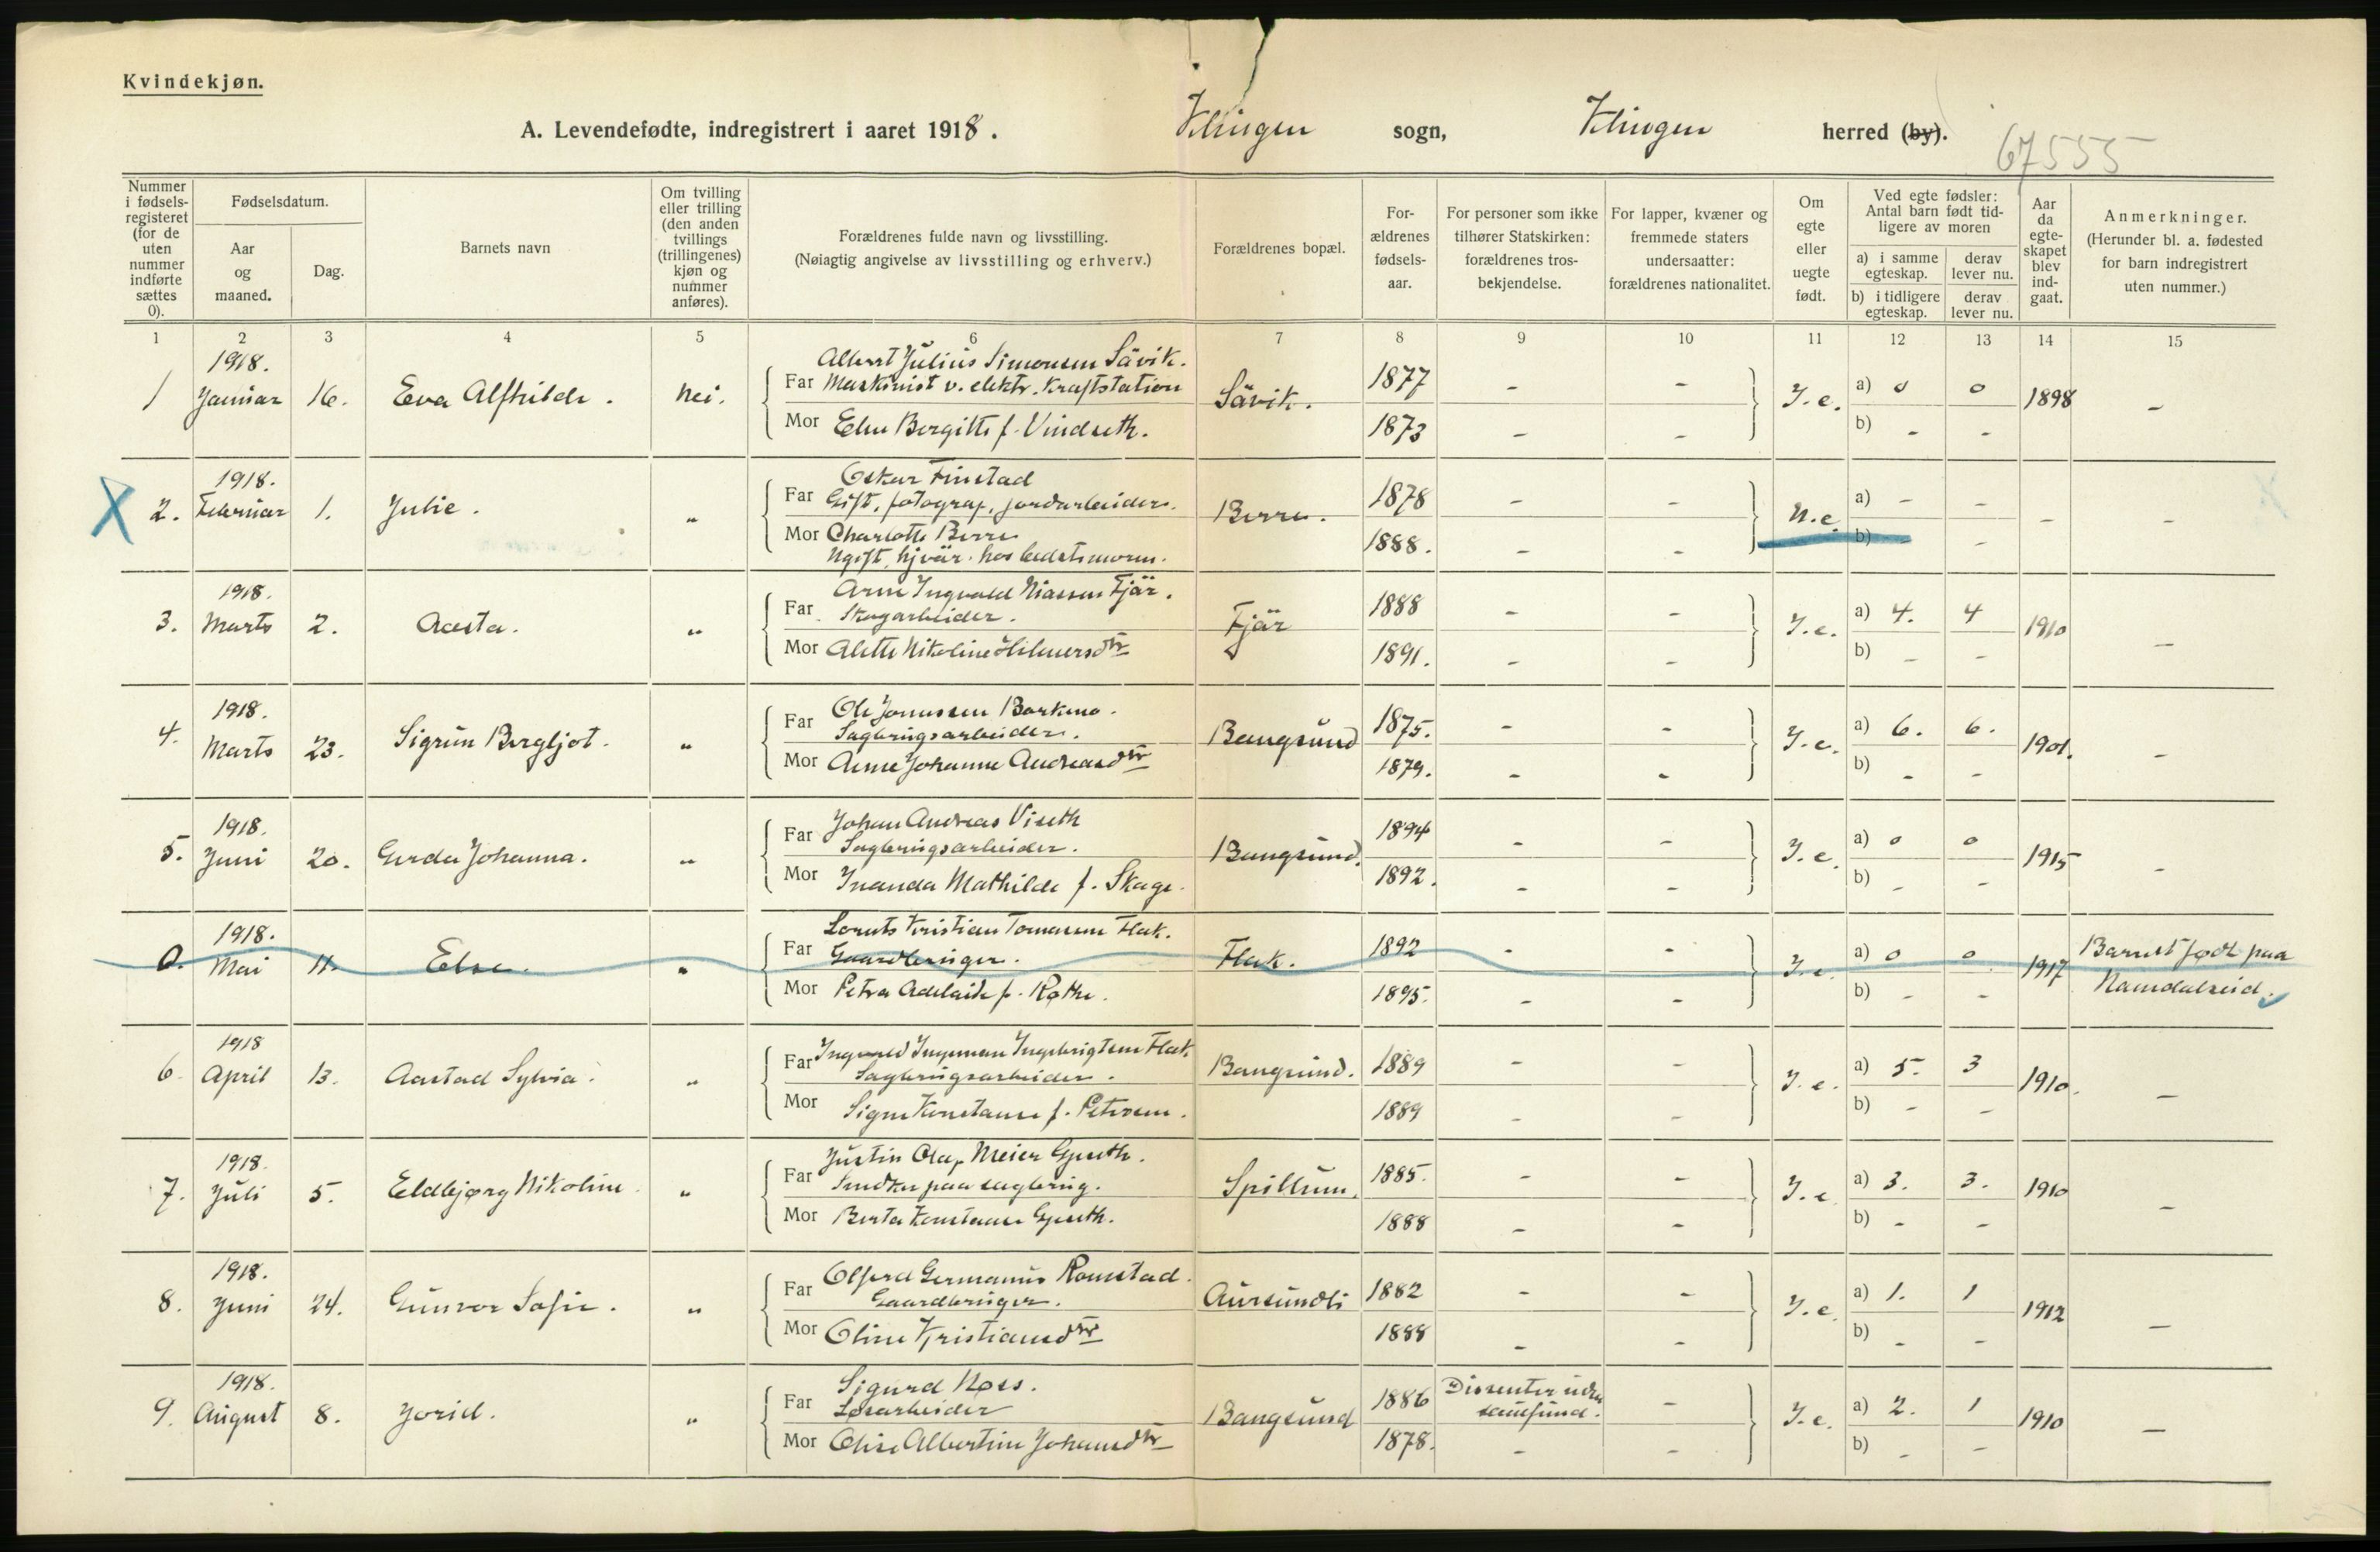 Kvindekjøn.
A. Levendefødte, indregistrert i aaret 1918. Klingen sogn, Klingen herred (by).
67555
Nummer i fødsels-registeret (for de uten nummer indførte sættes 0).
Fødselsdatum.
Aar og maaned.
Dag.
Barnets navn
Om tvilling eller trilling (den anden tvillings (trillingenes) kjøn og nummer anføres).
Forældrenes fulde navn og livsstilling.
(Nøiagtig angivelse av livsstilling og erhverv.)
Forældrenes bopæl.
For-ældrenes fødsels-aar.
For personer som ikke tilhører Statskirken: forældrenes tros-bekjendelse.
For lapper, kvæner og fremmede staters undersaatter: forældrenes nationalitet.
Om egte eller uegte født.
Ved egte fødsler: Antal barn født tid-ligere av moren
a) i samme egteskap.
derav lever nu.
b) i tidligere egteskap.
derav lever nu.
Aar da egte-skapet blev ind-gaat.
Anmerkninger.
(Herunder bl. a. fødested for barn indregistrert uten nummer.)
1 2 3 4 5 6 7 8 9 10 11 12 13 14 15
1918. Albert Julius Simonsen Sävik.
1 Januar 16. Eva Alfhilde. Nei. Far Maskinist v. elektr. Kraftstation Sävik. 1877 - - I.e. a) 0 0 1898 -
Mor Elen Bergitte f. Vindseth. 1873 - - b) - -
1918. Oskar Finstad
2. Februar 1. Julie. „ Far Gift, fotograf, jordarbeider. Berre. 1878 - - U.e. a) - - - -
Mor Charlotte Berre 1888. - - b) - -
Ugift, hjvär. hos bedstemoren.
1918. Arne Ingvald Niassen Fjär.
3. Marts 2. Aasta. „ Far Skogarbeider. Fjär 1888 - - I.e. a) 4. 4 1910 -
Mor Alette Nikoline Hilmersdtr 1891. - - b) - -
1918. Ole Jonassen Barkmo.
4. Marts 23. Sigrun Bergljot. „ Far Sagbrugsarbeider. Bangsund 1875. - - I.e. a) 6. 6. 1901. -
Mor Anne Johanne Andreasdtr 1879. - - b) - -
1918. Johan Andreas Viseth
5. Juni 20. Gerda Johanna. „ Far Sagbrugsarbeider. Bangsund. 1894 - - I.e. a) 0 0 1915 -
Mor Inanda Mathilde f. Skage. 1892. - - b) - -
1918. Lornts Kristian Tomassen Flak.
0. Mai 11. Else. „ Far Gaardbruger. Flak. 1892 - - I.e. a) 0 0 1917 Barnet født paa
Mor Petra Adelaide f. Røthe. 1895. - - b) - - Namdalseid.
1918 Ingvald Ingeman Ingebrigtsen Flak
6. April 13. Aastad Sylvia. „ Far Sagbrugsarbeider. Bangsund. 1889 - - I.e. a) 5. 3 1910. -
Mor Signe Konstanse f. Petersen. 1889 - - b) - -
1918. Justin Olaf Meier
7. Juli 5. Eldbjørg Nikoline. „ Far Smed paa sagbrug. Spillum. 1885. - - I.e. a) 3. 3. 1910 -
Mor Berta Konstanse 1888 - - b) - -
1918. Olferd Germanus Romstad.
8. Juni 24. Gunvor Sofie. „ Far Gaardbruger. Aursundli 1882 - - I.e. a) 1. 1 1912 -
Mor Oline Kristiansdtr 1888 - - b) - -
1918. Sigurd Næss.
9. August 8. Jorid. „ Far Løsarbeider Bangsund 1886 Dissenter uden samfund. - I.e. a) 2. 1 1910 -
Mor Elise Albertine Johansdtr 1878. - - b) - -